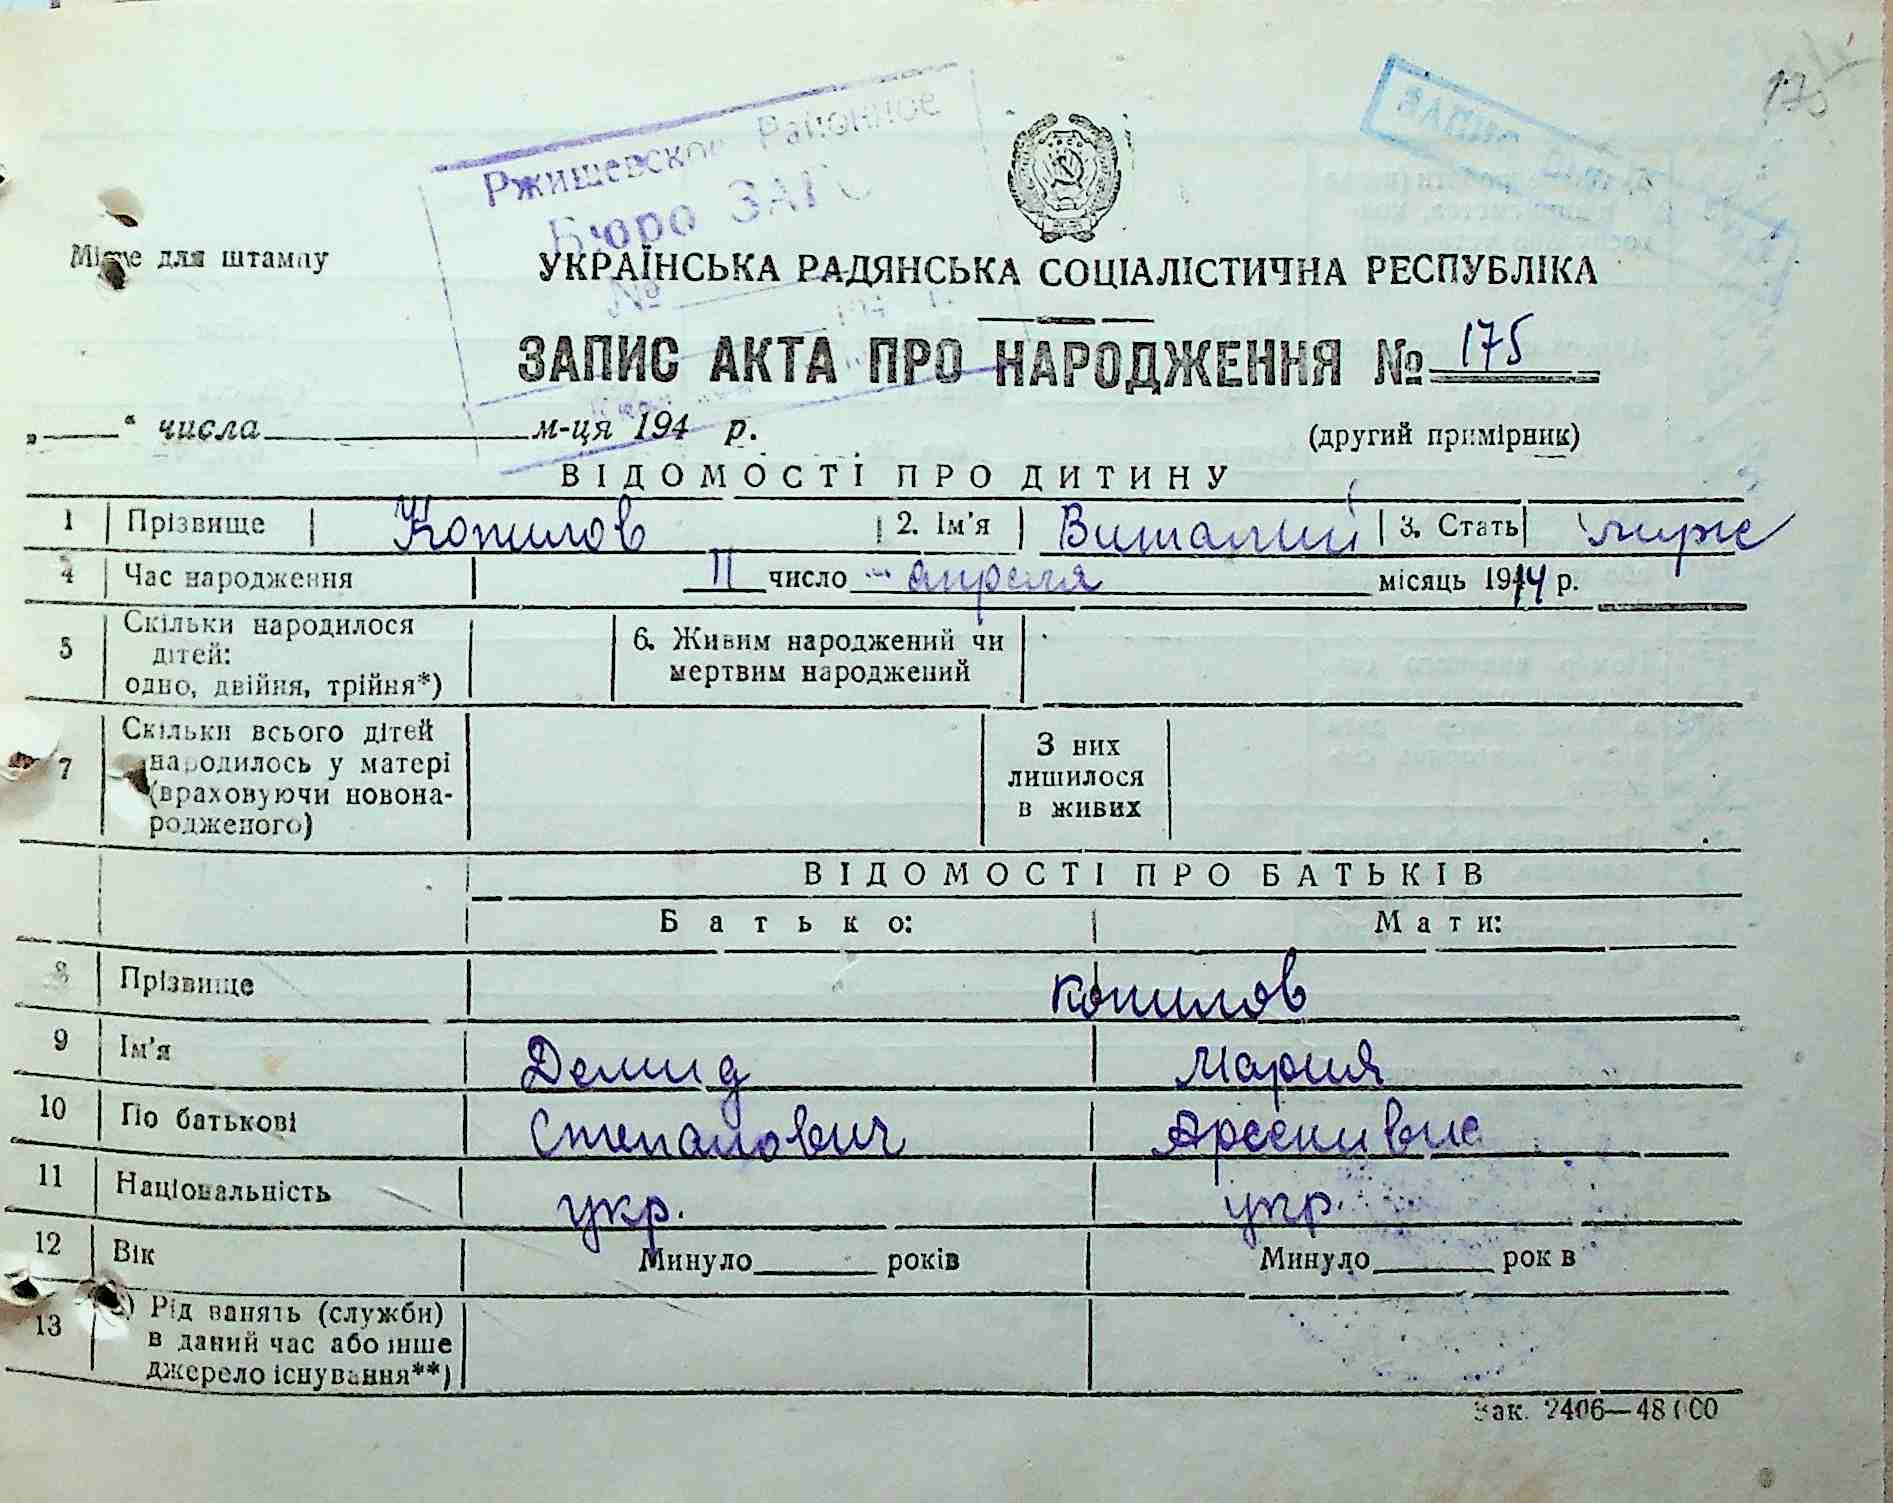 175
Ржищевское Районное
Бюро ЗАГС
№
Місце для штампу
УКРАЇНСЬКА РАДЯНСЬКА СОЦІАЛІСТИЧНА РЕСПУБЛІКА
ЗАПИС АКТА ПРО НАРОДЖЕННЯ № 175
„ “ числа м-ця 194 р.
(другий примірник)
ВІДОМОСТІ ПРО ДИТИНУ
1 Прізвище Копилов 2. Ім'я Виталий 3. Стать муже
4 Час народження 11 число апреля місяць 1944 р.
5 Скільки народилося дітей: одно, двійня, трійня*) 6. Живим народжений чи мертвим народжений
7 Скільки всього дітей народилось у матері (враховуючи новонародженого) З них лишилося в живих
ВІДОМОСТІ ПРО БАТЬКІВ
Батько: Мати:
8 Прізвище Копилов
9 Ім'я Демид Мария
10 По батькові Степанович Арсенивна
11 Національність укр. укр.
12 Вік Минуло років Минуло років
13 а) Рід занять (служби) в даний час або інше джерело існування**)
Зак. 2406—48000